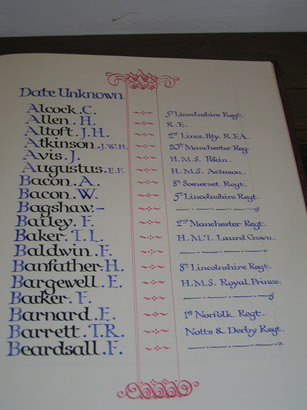 Date Unknown
Alcock. C. 5th Lincolnshire Regt.
Allen. H. R.E.
Altoft. J.H. 1st Lincs. Bty. R.F.A.
Atkinson. J.W.H. 20th Manchester Reg.
Avis. J. H.M.S. Pekin.
Augustus. E.F. H.M.S. Acteon.
Bacon. A. 8th Somerset. Regt.
Bacon. W. 5th Lincolnshire Regt.
Bagshaw. –
Bailey. F. 2nd Manchester Regt.
Baker. T. L. H.M.T. Laurel Crown.
Baldwin. F.
Banfather. H. 8th Lincolnshire Regt.
Bargewell. E. H.M.S. Royal Prince.
Barker. F.
Barnard. E. 1st Norfolk Regt.
Barrett. T.R. Notts & Derby Regt.
Beardsall. F.